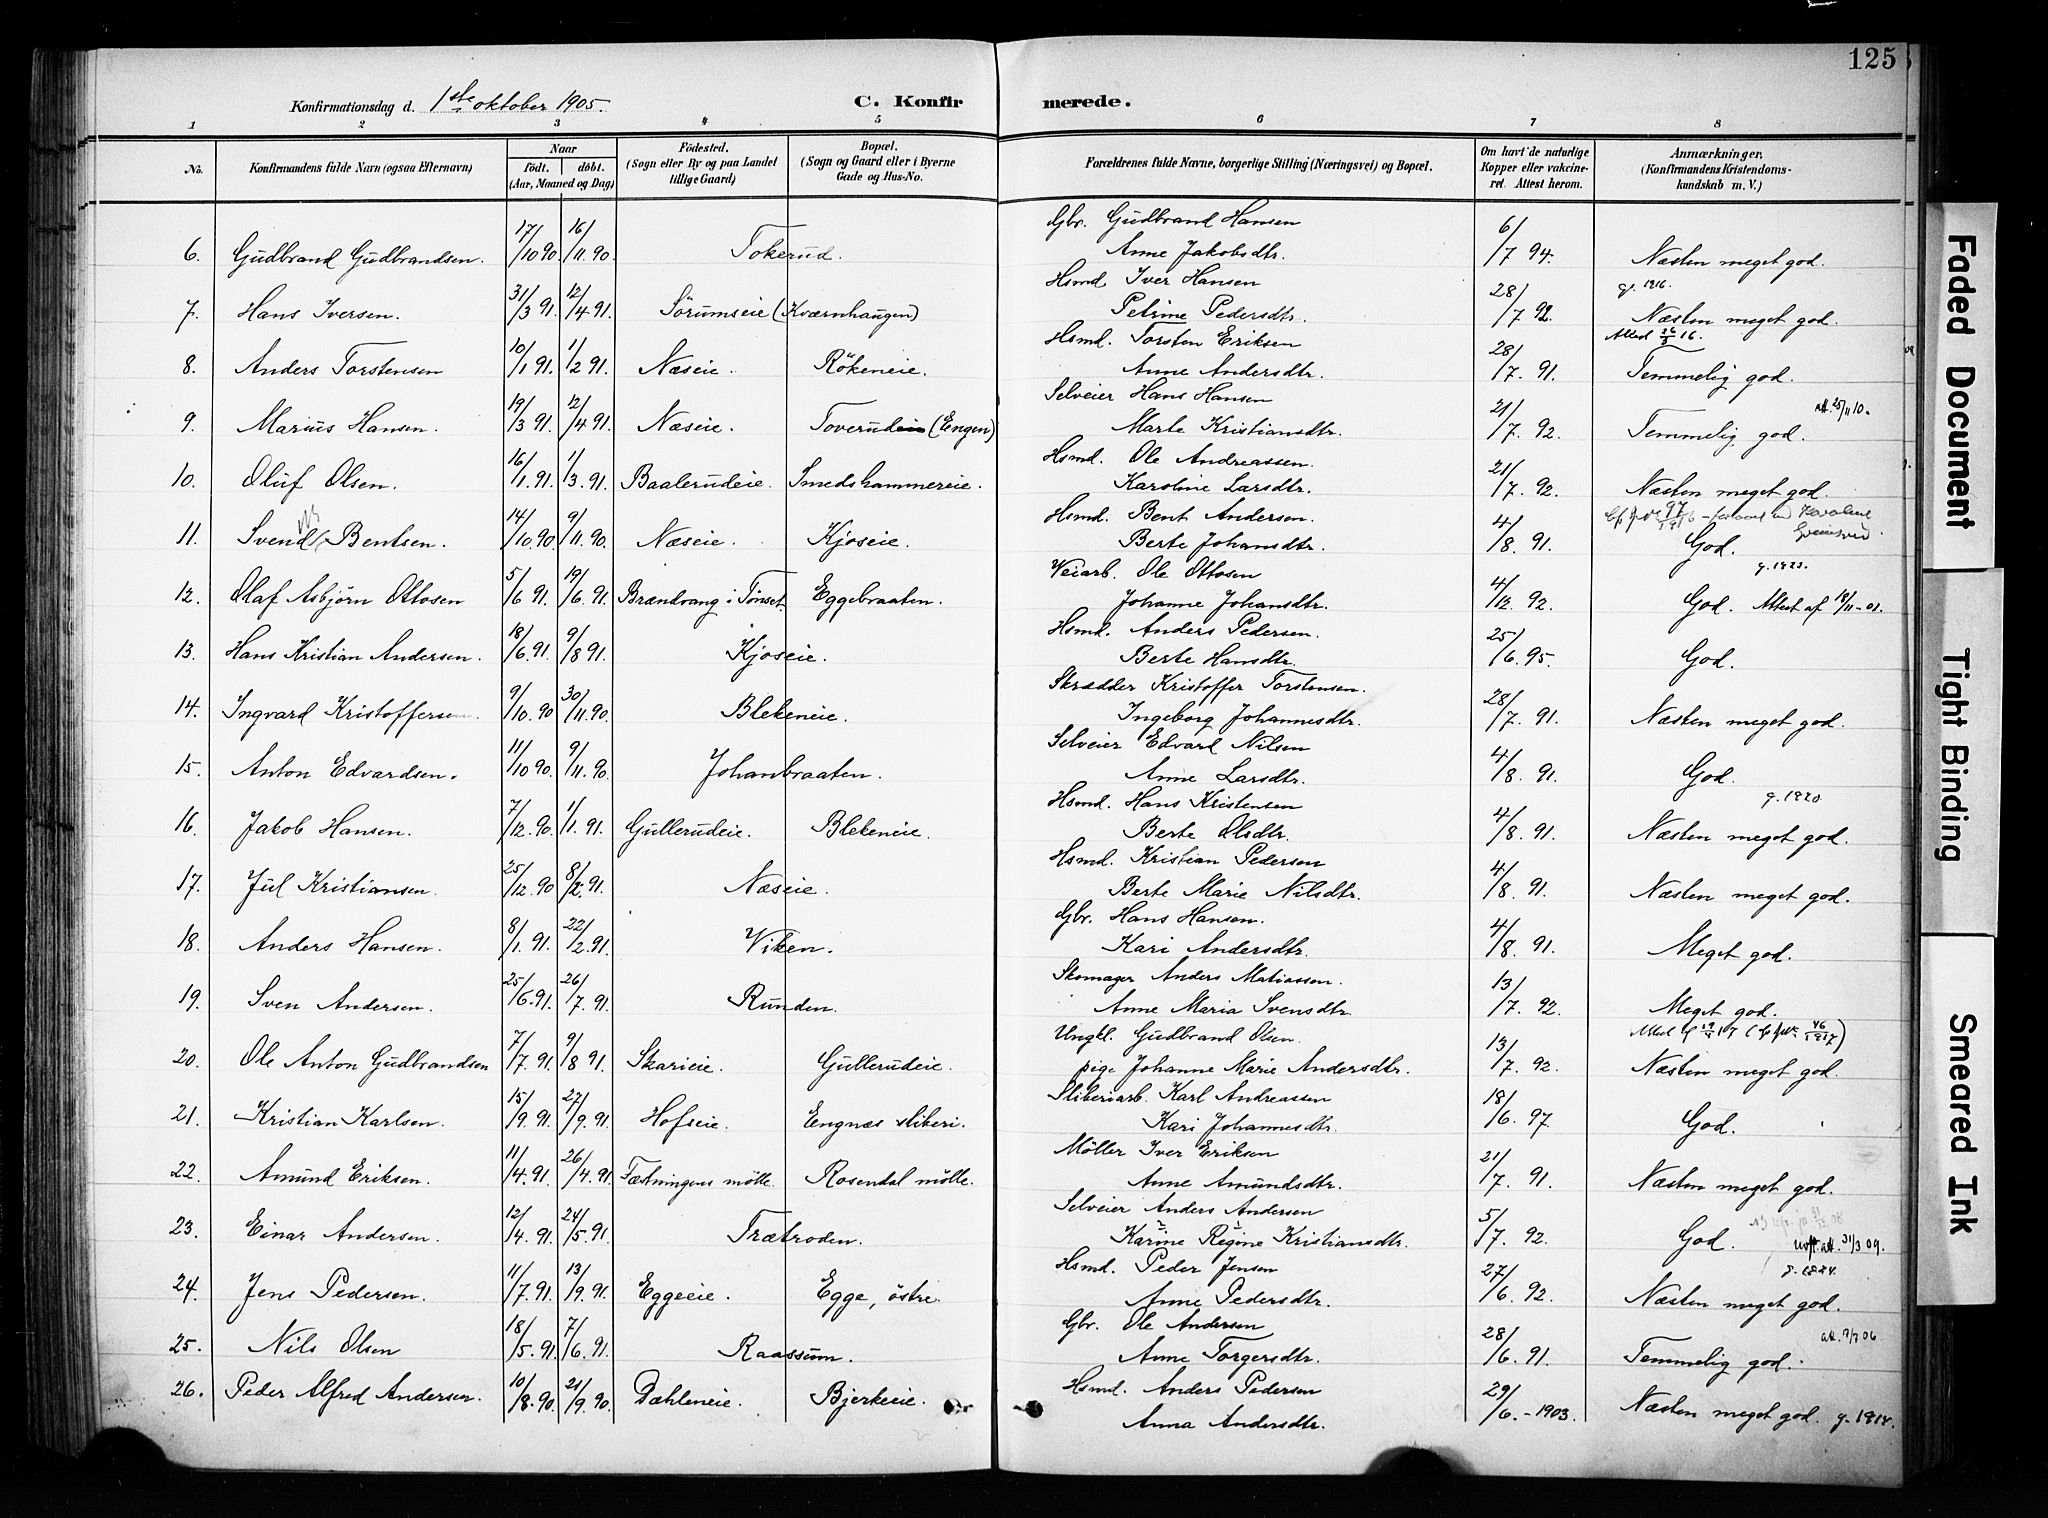 125
Konfirmationsdag d. 1ste oktober 1905. C. Konfirmerede.
1 2 3 4 5 6 7 8
No. Konfirmandens fulde Navn (ogsaa Efternavn) Naar født. døbt. (Aar, Maaned og Dag) Fødested. (Sogn eller By og paa Landet tillige Gaard) Bopæl. (Sogn og Gaard eller i Byerne Gade og Hus-No. Forældrenes fulde Navne, borgerlige Stilling (Næringsvei) og Bopæl. Om havt de naturlige Kopper eller vakcineret. Attest herom. Anmærkninger. (Konfirmandens Kristendomskundskab m. V.)
Gbr. Gudbrand Hansen
6. Gudbrand Gudbrandsen. 17/10 90 16/11.90. Tokerud. Anne Jakobsdtr. 6/7 94. Næsten meget god.
Hsmd. Iver Hansen g. 1916.
7. Hans Iversen. 31/3 91. 12/4 91. Sörumseie (Kværnhaugen) Petrine Pedersdtr. 28/7 92. Næsten meget god.
Hsmd. Torsten Eriksen
8. Anders Torstensen 10/1 91. 1/2 91. Næseie. Rökeneie. Anne Andersdtr. 28/7. 91. Temmelig god.
Selveier Hans Hansen att. 25/11 10.
9. Marius Hansen. 19/3 91. 12/4 91. Næseie. Toverud (Engen) Marte Kristiansdtr. 21/7. 92. Temmelig god.
Hsmd. Ole Andreassen.
10. Oluf Olsen. 16/1. 91. 1/3. 91. Baalerudeie. Smedshammereie. Karoline Larsdtr. 21/7. 92. Næsten meget god.
Hsmd. Bent Andersen. Karoline
11. Svend Bentsen. 14/10.90 9/11.90. Næseie. Kjoseie. Berte Johansdtr. 4/8. 91. God.
Veiarb. Ole Ottosen
12. Olaf Asbjörn Ottosen 5/6 91. 19/6. 91. Brændvang i Tönset. Eggebraaten. Johanne Johansdtr. 4/12. 92. God. Attest af 18/11-01.
Hsmd. Anders Pedersen.
13. Hans Kristian Andersen. 18/6.91. 9/8 91. Kjoseie. Berte Hansdtr. 25/6.95. God.
Skrædder Kristoffer Torstensen.
14. Ingvard Kristoffersen. 9/10. 90 30/11.90. Blekeneie. Ingeborg Johannesdtr. 28/7. 91. Næsten meget god.
Selveier Edvard Nilsen
15. Anton Edvardsen. 11/10 90. 9/11. 90. Johanbraaten. Anne Larsdtr. 4/8. 91. God.
Hsmd. Hans Kristensen g. 1920.
16. Jakob Hansen. 7/12. 90. 1/1. 91. Gullerudeie. Blekeneie. Berte Olsdtr. 4/8. 91. Næsten meget god.
Hsmd. Kristian Pedersen
17. Jul Kristiansen. 25/12. 90 8/2. 91. Næseie. Berte Marie Nilsdtr. 4/8. 91. Næsten meget god.
Gbr. Hans Hansen.
18. Anders Hansen. 8/1. 91. 22/2.91. Viken. Kari Andersdtr. 4/8. 91. Meget god.
Skomager Anders Matiassen.
19. Sven Andersen. 25/6.91. 26/7. 91. Runden. Anne Maria Svensdtr. 13/7. 92. Meget god.
Ungkl. Gudbrand Olsen.
20. Ole Anton Gudbrandsen 7/7. 91. 9/8 91. Skarieie. Gullerudeie. pige Johanne Marie Andersdtr. 13/7. 92. Næsten meget god.
Sliberiarb. Karl Andreassen
21. Kristian Karlsen. 15/9. 91. 27/9. 91. Hofseie. Engnæs sliberi. Kari Johannesdtr. 18/6. 97. God.
Möller Iver Eriksen
22. Amund Eriksen. 11/4. 91. 26/4. 91. Fæstningens mölle. Rosendal mölle. Anne Amundsdtr. 21/7. 91. Næsten meget god.
Selveier Anders Andersen
23. Einar Andersen. 12/4. 91. 24/5. 91. Trætroden. Karine Regine Kristiansdtr. 5/7. 92. God. att. 31/3 09.
Hsmd. Peder Jensen
24. Jens Pedersen. 11/7. 91. 13/9. 91. Eggeeie. Egge, östre. Anne Pedersdtr. 27/6. 92. Næsten meget god.
Gbr. Ole Andersen att. 9/7 06
25. Nils Olsen 18/5. 91. 7/6. 91. Raassum. Anne Torgersdtr. 28/6. 91. Temmelig god.
Hsmd. Anders Pedersen
26. Peder Alfred Andersen. 10/8. 90. 21/9. 90. Dæhleneie. Bjerkeeie. Anna Andersdtr. 29/6.-1903. Næsten meget god.
Faded Document
Tight Binding
Smeared Ink